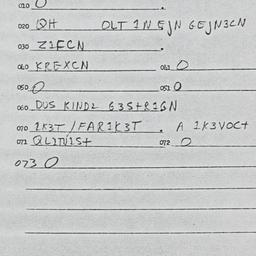 010 O
020 QH OLT 1N EJN GEJN3CN
030 Z1FCN .
040 KREXCN 041 O
050 O 051 O
060 DUS KIND2 G3S+R1GN
070 1K3T / FAR1K3T . A 1K3VOC+
071 QL1N1S+ 072 O
073 O